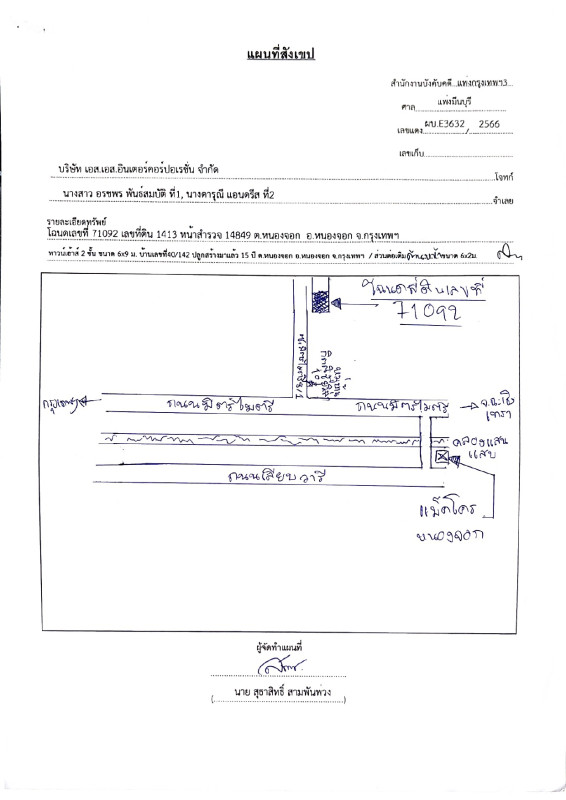 แผนที่สังเขป
สำนักงานบังคับคดี...แพ่งกรุงเทพฯ3...
ศาล...แพ่งมีนบุรี
เลขแดง...ผบ.E3632.../...2566
เลขเก็บ
บริษัท เอส.เอส.อินเตอร์คอร์ปอเรชั่น จำกัด โจทก์
นางสาว อรชพร พันธ์สมบัติ ที่1, นางดารุณี แอนดรีส ที่2 จำเลย
รายละเอียดทรัพย์
โฉนดเลขที่ 71092 เลขที่ดิน 1413 หน้าสำรวจ 14849 ต.หนองจอก อ.หนองจอก จ.กรุงเทพฯ
ทาวน์เฮ้าส์ 2 ชั้น ขนาด 6x9 ม. บ้านเลขที่40/142 ปลูกสร้างมาแล้ว 15 ปี ต.หนองจอก อ.หนองจอก จ.กรุงเทพฯ / ส่วนต่อเติม ขนาด 6x2ม.
โฉนดที่ดินเลขที่
71092
กรุงเทพฯ
ถนนมิตรไมตรี
ถนนมิตรไมตรี
จ.ฉะเชิง
เทรา
คลองแสน
แสบ
ถนนเลียบวารี
แม็คโคร
หนองจอก
ผู้จัดทำแผนที่
นาย สุธาสิทธิ์ สามพันพ่วง